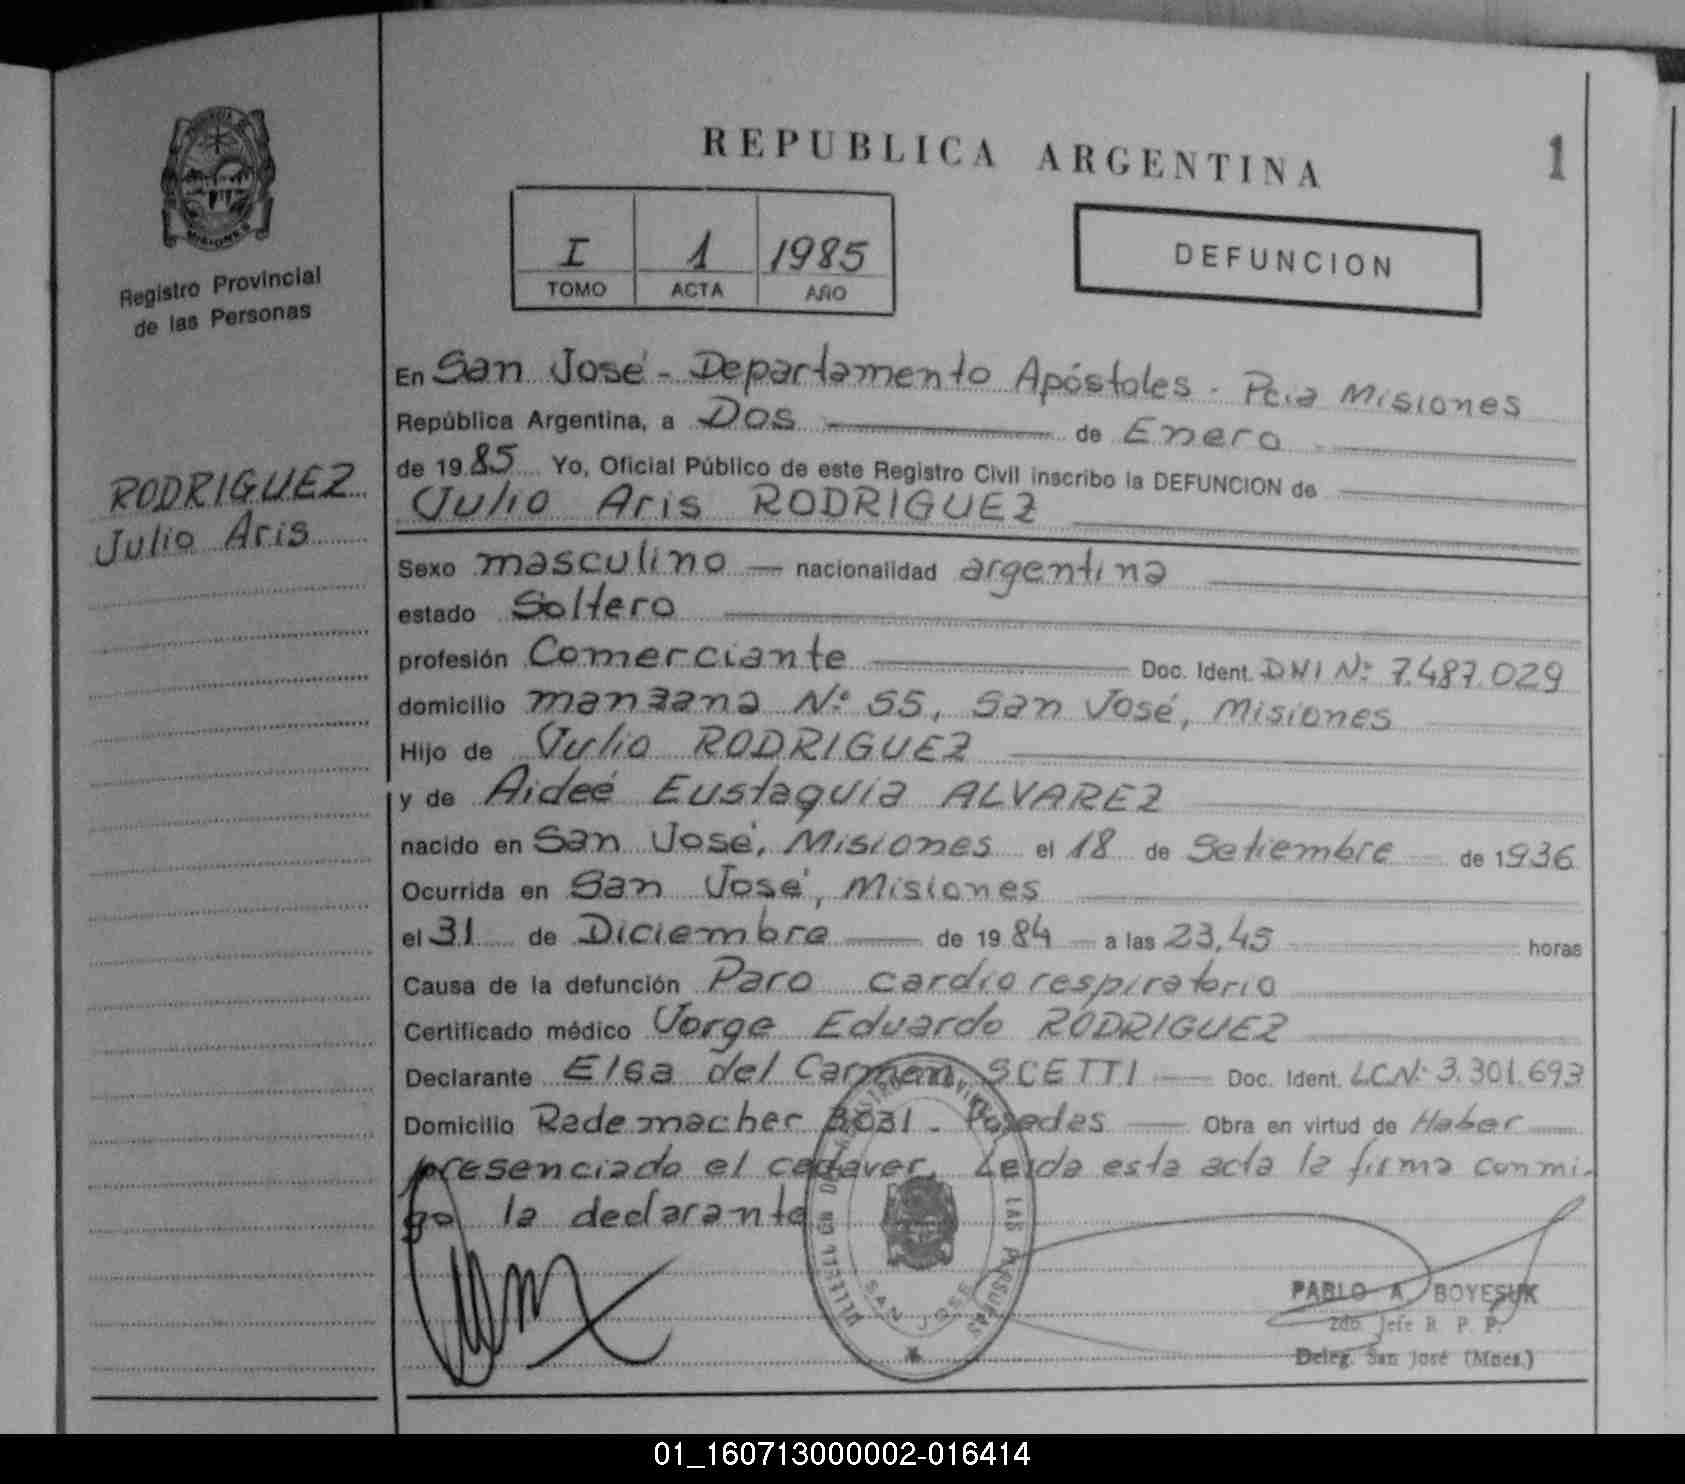 PROVINCIA DE
MISIONES
Registro Provincial
de las Personas
RODRIGUEZ
Julio Aris
REPUBLICA ARGENTINA
1
I 1 1985
TOMO ACTA AÑO
DEFUNCION
En San José - Departamento Apóstoles - Pcia Misiones
República Argentina, a Dos de Enero
de 1985 Yo, Oficial Público de este Registro Civil inscribo la DEFUNCION de
Julio Aris RODRIGUEZ
Sexo masculino nacionalidad argentina
estado Soltero
profesión Comerciante Doc. Ident. DNI Nº 7.487.029
domicilio manzana Nº 55, San José, Misiones
Hijo de Julio RODRIGUEZ
y de Aideé Eustaquia ALVAREZ
nacido en San José, Misiones el 18 de Setiembre de 1936
Ocurrida en San José, Misiones
el 31 de Diciembre de 1984 a las 23,45 horas
Causa de la defunción Paro cardiorespiratorio
Certificado médico Jorge Eduardo RODRIGUEZ
Declarante Elsa del Carmen SCETTI Doc. Ident. LCNº 3.301.693
Domicilio Rademacher - Posadas Obra en virtud de Haber
presenciado el cadaver, Leida esta acta la firma conmi-
go la declarante
LAS PERSONAS
SAN JOSE
PABLO A. BOYESUK
2do. Jefe R. P. P.
Deleg. San José (Mnes.)
01_160713000002-016414